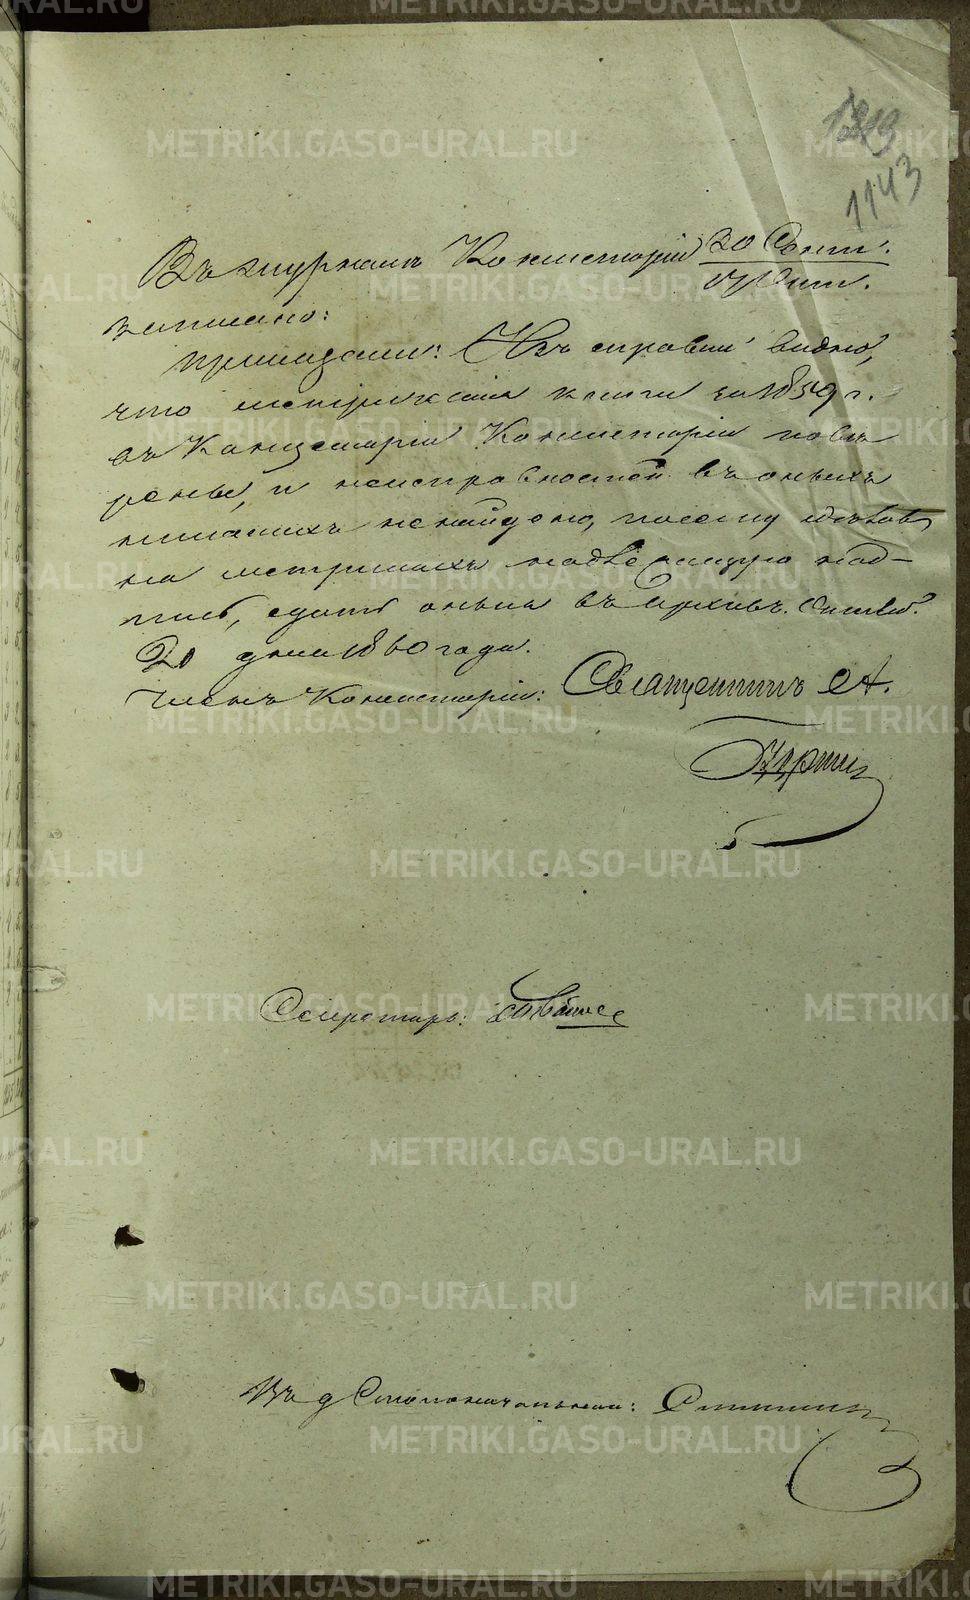 1143
Въ журналѣ Консисторіи 30 Сент.
Окт.
записано:
приказали: Изъ справки видно,
что метрическія книги за 1859 г.
въ Канцеляріи Консисторіи повѣ
рены, и неисправностей въ оныхъ
никакихъ не найдено, посему
на метрикахъ над-
пись, сдать оныя въ Архивъ. Октяб.
20 дня 1860 года.
Членъ Консисторіи: Священникъ А.
Секретарь:
Въ д Столоначальника:
METRIKI.GASO-URAL.RU